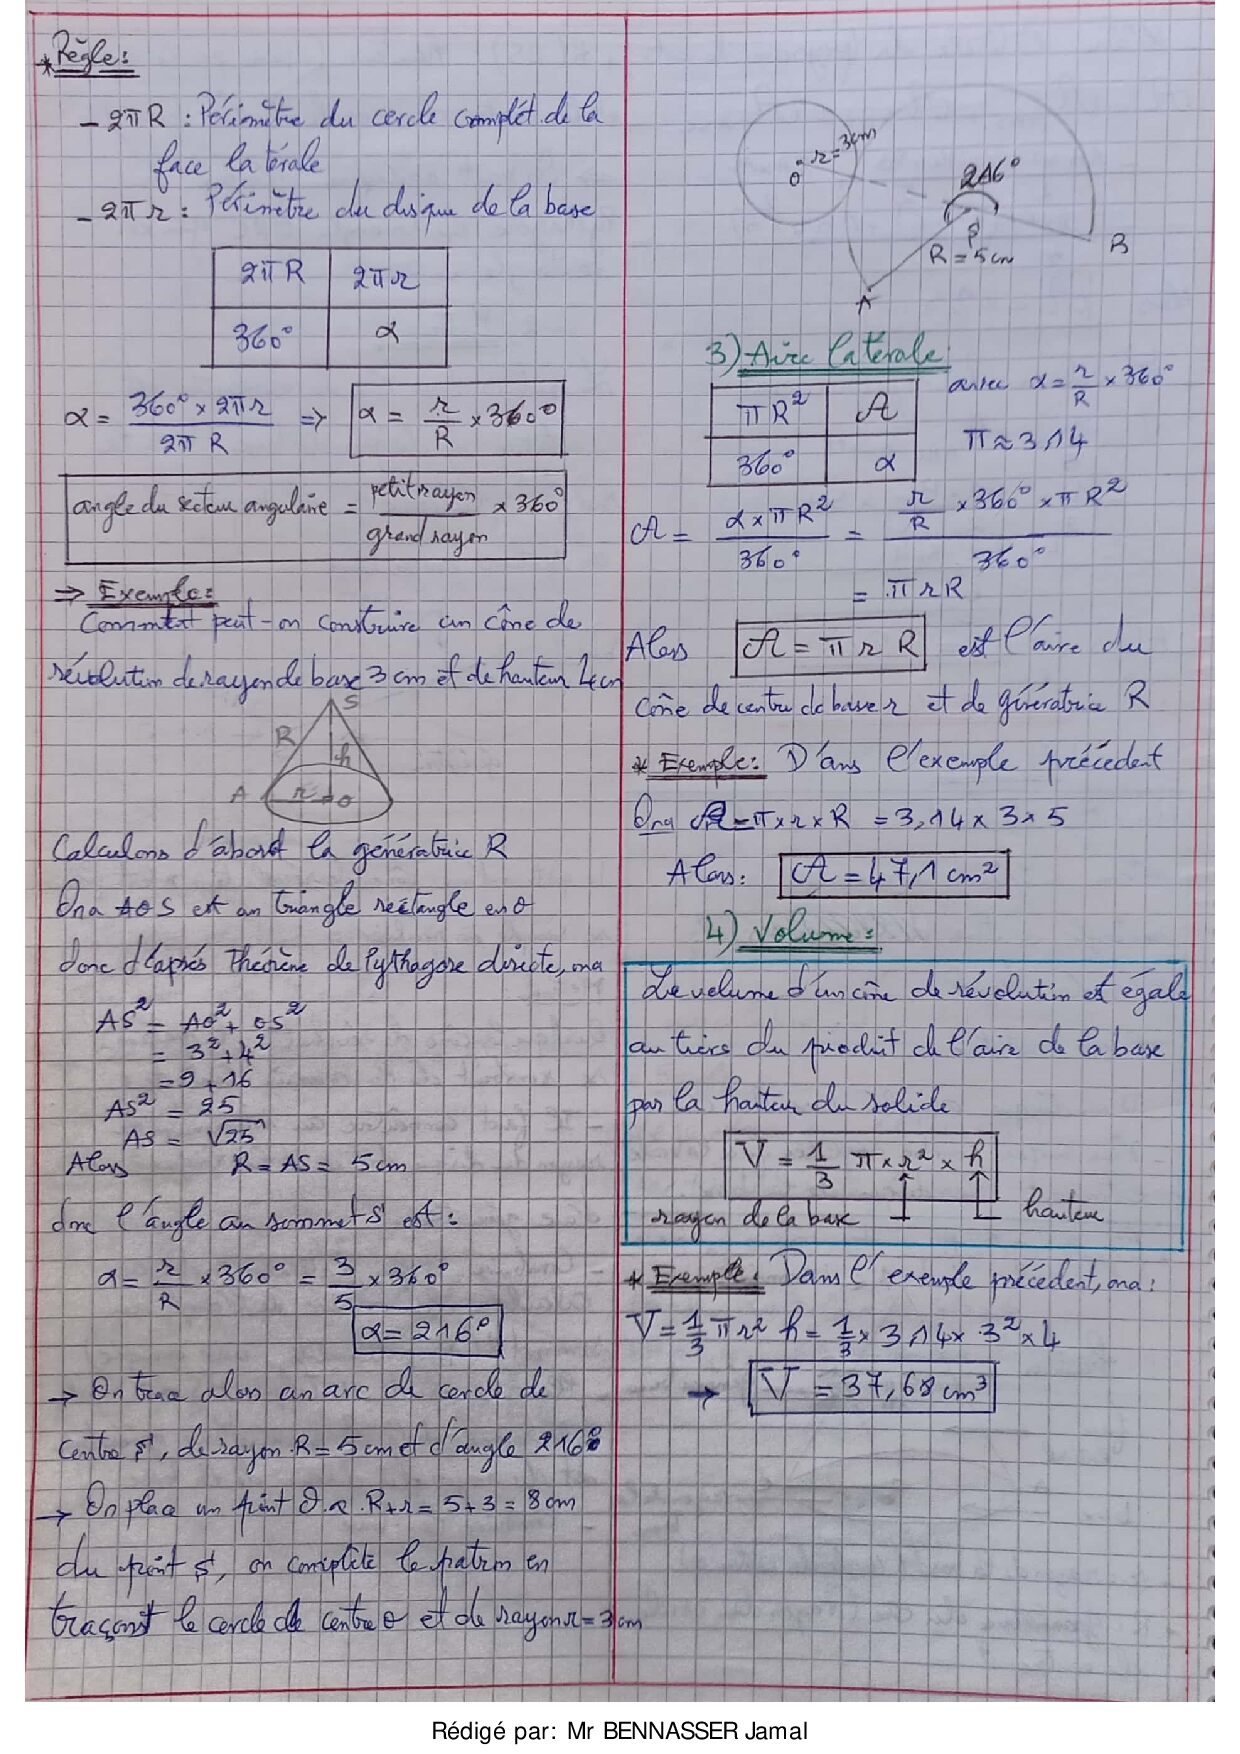 * Règle:
- 2πR : Périmètre du cercle complèt de la
face latérale
- 2πr : Périmètre du disque de la base
2πR 2πr
360° α
α = 360° × 2πr / 2πR ⇒ α = r/R × 360°
angle du secteur angulaire = petit rayon / grand rayon × 360°
⇒ Exemple:
Comment peut-on construire un cône de
révolution de rayon de base 3 cm et de hauteur 4 cm
S
R
h
A r O
Calculons d'abord la génératrice R
Ona AOS est un triangle rectangle en O
donc d'après Théorème de Pythagore directe, ona
AS² = AO² + OS²
= 3² + 4²
= 9 + 16
AS² = 25
AS = √25
Alors R = AS = 5 cm
donc l'angle au sommet S est :
α = r/R × 360° = 3/5 × 360°
α = 216°
→ On trace alors un arc de cercle de
centre S, de rayon R = 5 cm et d'angle 216°
→ On place un point O à R+r = 5+3 = 8 cm
du point S, on complète le patron en
traçant le cercle de centre O et de rayon r = 3 cm
r = 3cm
O
216°
S
B
R = 5 cm
A
3) Aire latérale:
πR² A
360° α
avec α = r/R × 360°
π ≈ 3,14
A = α × πR² / 360° = r/R × 360° × πR² / 360°
= πrR
Alors A = π r R est l'aire du
cône de centre de base r et de génératrice R
* Exemple: D'ans l'exemple précédent
Ona A = π × r × R = 3,14 × 3 × 5
Alors: A = 47,1 cm²
4) Volume:
Le volume d'un cône de révolution est égale
au tiers du produit de l'aire de la base
par la hauteur du solide
V = 1/3 π × r² × h
rayon de la base hauteur
* Exemple: Dans l'exemple précédent, ona :
V = 1/3 π r² h = 1/3 × 3,14 × 3² × 4
→ V = 37,68 cm³
Rédigé par: Mr BENNASSER Jamal